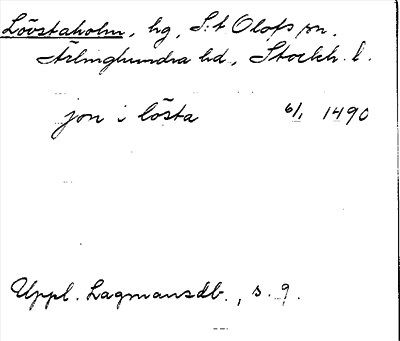 Lövstaholm, hg, S:t Olofs sn.
Ärlinghundra hd, Stockh. l.
jon i lösta 6/1 1490
Uppl. Lagmansdb., s. 9.